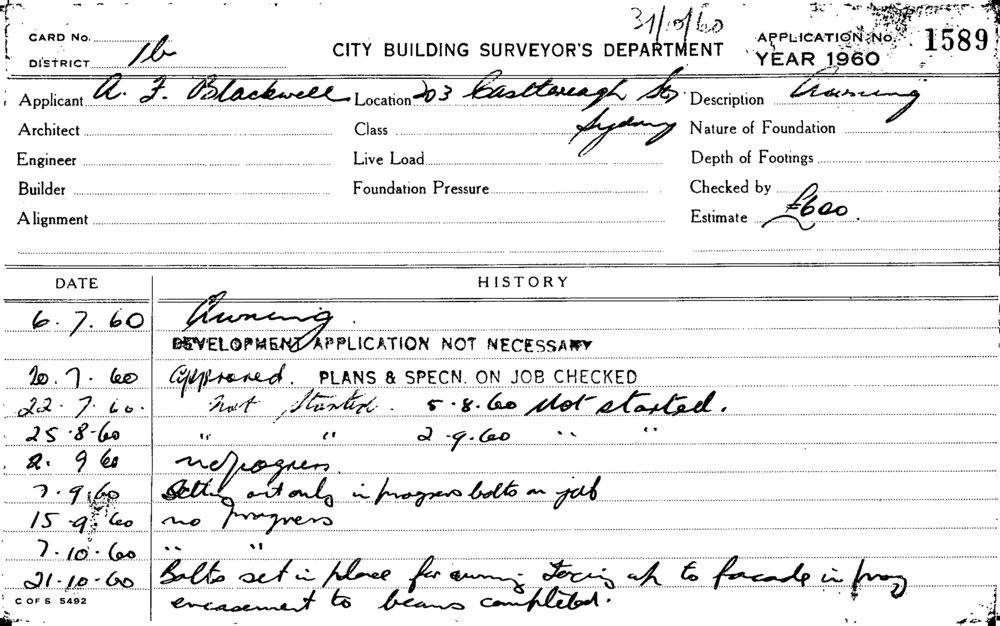 31/10/60
CARD No.
DISTRICT 1b
CITY BUILDING SURVEYOR'S DEPARTMENT
APPLICATION No. 1589
YEAR 1960
Applicant A. F. Blackwell Location 203 Castlereagh St, Description Awning
Architect Class Sydney Nature of Foundation
Engineer Live Load Depth of Footings
Builder Foundation Pressure Checked by
Alignment Estimate £600.
DATE HISTORY
6.7.60 Awning.
DEVELOPMENT APPLICATION NOT NECESSARY
20.7.60 Approved. PLANS & SPECN. ON JOB CHECKED
22.7.60. Not Started. 5.8.60 Not started.
25.8.60 " " 2.9.60 " "
2. 9 60 no progress.
7.9.60 Setting out only in progress bolts on job
15.9.60 no progress
7.10.60 " "
21.10.60 Bolts set in place for awning up to facade in prog
encasement to beams completed.
C OF S 5492